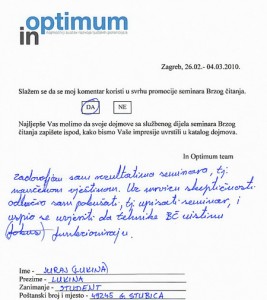 optimum
in
Zagreb, 26.02.- 04.03.2010.
Slažem se da se moj komentar koristi u svrhu promocije seminara Brzog čitanja.
DA NE
Najljepše Vas molimo da svoje dojmove sa službenog dijela seminara Brzog
čitanja zapišete ispod, kako bismo Vaše impresije uvrstili u katalog dojmova.
In Optimum team
Zadovoljan sam rezultatima seminara, tj.
naučenom vještinom. Uz urođenu skeptičnost
odlučio sam pokušati, tj. upisati seminar, i
uspio se uvjeriti da tehnike BČ uistinu
funkcioniraju.
Ime - JURAJ (LUKINA)
Prezime - LUKINA
Zanimanje - STUDENT
Poštanski broj i mjesto - 49245 G. STUBICA